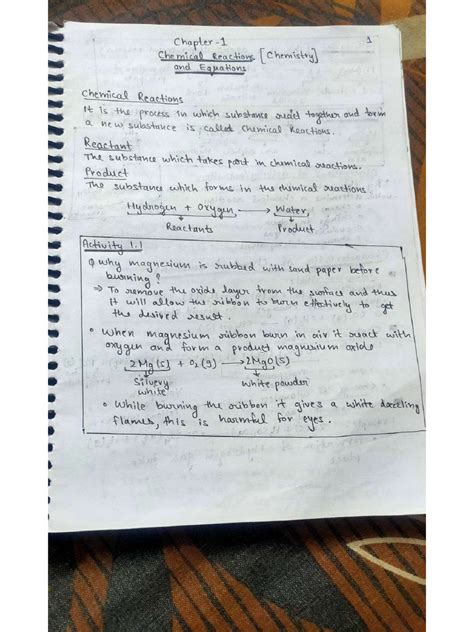 Chapter-1
1
Chemical Reactions [Chemistry]
and Equations
Chemical Reactions
It is the process in which substance react together and form
a new substance is called Chemical Reactions.
Reactant
The substance which takes part in chemical reactions.
Product
The substance which forms in the chemical reactions
Hydrogen + Oxygen → Water
Reactants Product
Activity 1.1
Q Why magnesium is rubbed with sand paper before
burning?
⇒ To remove the oxide layer from the surface and thus
it will allow the ribbon to burn effectively to get
the desired result.
• When magnesium ribbon burn in air it react with
oxygen and form a product magnesium oxide
2Mg(s) + O₂(g) → 2MgO(s)
Silvery white powder
white
• While burning the ribbon it gives a white dazzling
flames, this is harmful for eyes.